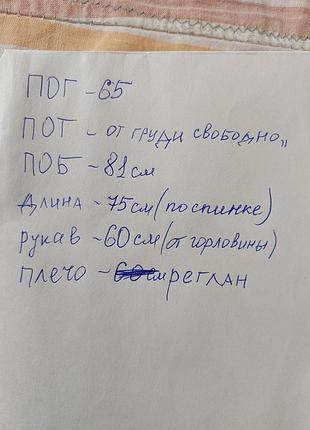 ПОГ - 65
ПОТ - от груди свободно„
ПОБ - 81см
длина - 75см (по спинке)
рукав - 60см (от горловины)
плечо - реглан